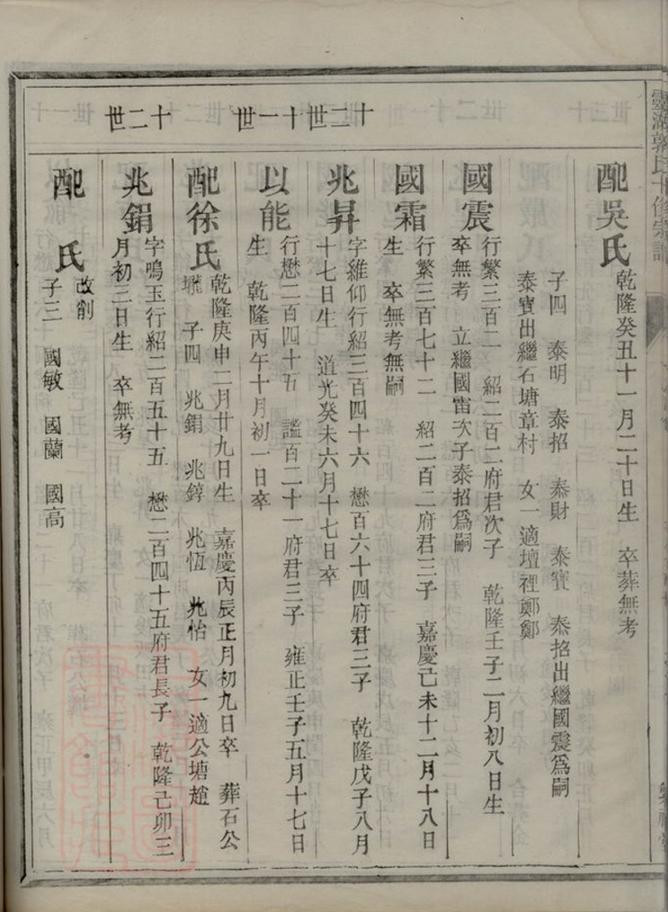 十二世
十一世
十二世
配吳氏
乾隆癸丑十一月二十日生 卒葬無考
子四 泰明 泰招 泰財 泰寶 泰招出繼國震爲嗣
泰寶出繼石塘章村 女一適壇裡鄭鄭
國震
行繁三百二 紹二百二府君次子 乾隆壬子二月初八日生
卒無考 立繼國雷次子泰招爲嗣
國霜
行繁三百七十二 紹二百二府君三子 嘉慶己未十二月十八日
生 卒無考無嗣
兆昇
字維仰行紹三百四十六 懋百六十四府君三子 乾隆戊子八月
十七日生 道光癸未六月十七日卒
以能
行懋二百四十五 謐百二十一府君三子 雍正壬子五月十七日
生 乾隆丙午十月初一日卒
配徐氏
乾隆庚申二月廿九日生 嘉慶丙辰正月初九日卒 葬石公
壠 子四 兆鋗 兆錞 兆恆 兆怡 女一適公塘趙
兆鋗
字鳴玉行紹二百五十五 懋二百四十五府君長子 乾隆己卯三
月初三日生 卒無考
配 氏
改削
子三 國敏 國蘭 國高